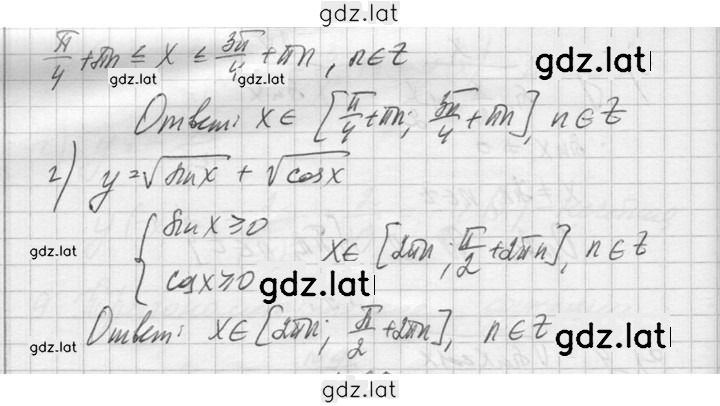 gdz.lat
π/4 + πn ≤ x ≤ 3π/4 + πn, n∈Z
gdz.lat gdz.lat gdz.lat
Ответ: x∈ [π/4 + πn; 3π/4 + πn], n∈Z
2) y = √sinx + √cosx
{ sinx ≥ 0
gdz.lat x∈ [2πn; π/2 + 2πn], n∈Z
cosx ≥ 0 gdz.lat gdz.lat
Ответ: x∈ [2πn; π/2 + 2πn], n∈Z
gdz.lat gdz.lat gdz.lat
gdz.lat